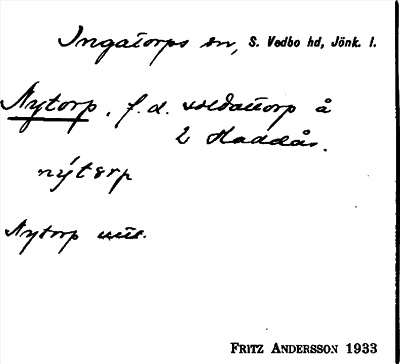 Ingatorps sn, S. Vedbo hd, Jönk. l.
Nytorp, f.d. soldattorp å
2 Haddås.
nýtorp
Nytorp
FRITZ ANDERSSON 1933